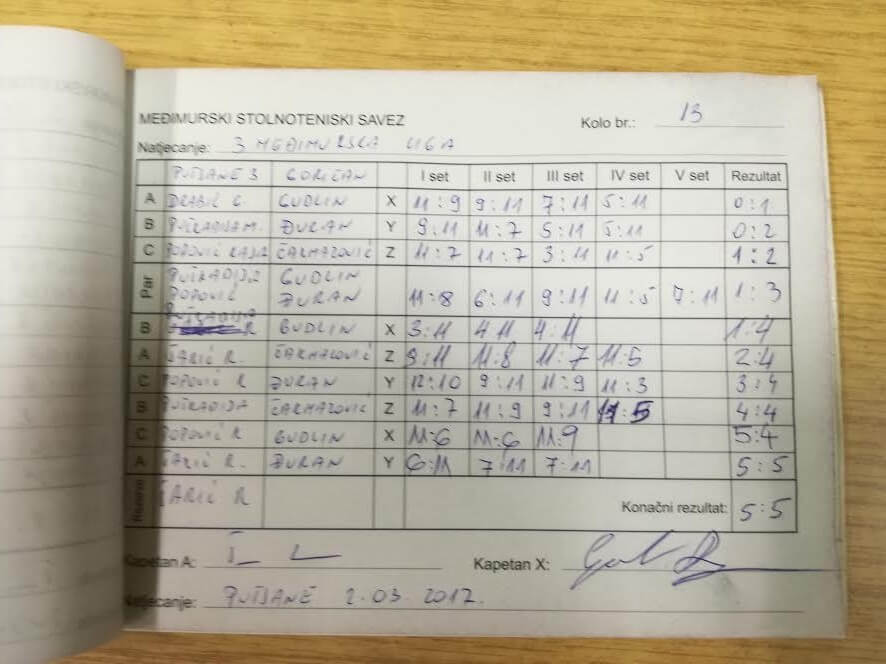 MEĐIMURSKI STOLNOTENISKI SAVEZ
Kolo br.: 13
Natjecanje: 3 MEĐIMURSKA LIGA
PUŠĆANE 3 GORIČAN I set II set III set IV set V set Rezultat
A DRABIĆ G. GUDLIN X 11:9 9:11 7:11 5:11 0:1
B PUŠKADIJA M. ĐURAN Y 9:11 11:7 5:11 5:11 0:2
C POPOVIĆ ČARMAZOVIĆ Z 11:7 11:7 3:11 11:5 1:2
Par PUŠKADIJA GUDLIN
POPOVIĆ ĐURAN 11:8 6:11 9:11 11:5 7:11 1:3
PUŠKADIJA
B R GUDLIN X 3:11 4:11 4:11 1:4
A ŠARIĆ R. ČARMAZOVIĆ Z 9:11 11:8 11:7 11:5 2:4
C POPOVIĆ R ĐURAN Y 12:10 9:11 11:9 11:3 3:4
B PUŠKADIJA ČARMAZOVIĆ Z 11:7 11:9 9:11 11:5 4:4
C POPOVIĆ R GUDLIN X 11:6 11:6 11:9 5:4
A ŠARIĆ R. ĐURAN Y 6:11 7:11 7:11 5:5
ŠARIĆ R Konačni rezultat: 5:5
Kapetan A: Kapetan X:
Natjecanje: 2.03.2017.